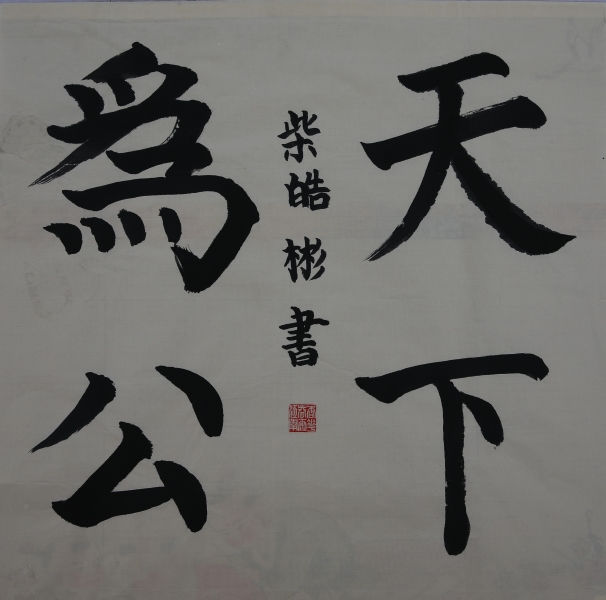 天下
為公
柴皓彬書